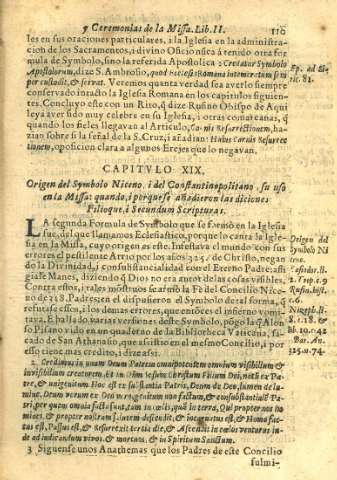 y Ceremonias de la Missa. Lib. II. 110
les en sus oraciones particulares, i la Iglesia en la administra-
cion de los Sacramentos, i divino Oficio no sea a tenido otra for
mula de Symbolo, sino la referida Apostolica: Credatur Symbolo
Apostolorum, dize S. Ambrosio, quod Ecclesia Romana intemeratum sem
per custodit, & servat. Veremos quanta verdad sea averlo siempre
conservado intacto la Iglesia Romana en los capitulos siguien-
tes. Concluyo este con un Rito, que dize Rufino Obispo de Aqui
leya aver sido muy celebre en su Iglesia, i otras comarcanas, q̃
quando los fieles llegavan al Articulo, Carnis Resurrectionem, ha-
zian sobre si la señal de la S. Cruz, i añadian: Huius Carnis Resurre
ctionem, oposicion clara a algunos Erejes que lo negavan.
CAPITVLO XIX.
Origen del Symbolo Niceno, i del Constantinopolitano, su uso
en la Missa: quando, i porque se añadieron las diciones
Filioque, i Secundum Scripturas.
LA segunda Formula de Symbolo que se formò en la Iglesia
fue, del que llamamos Eclesiastico, porque lo canta la Igle-
sia en la Missa, cuyo origen es este. Infestava el mundo con sus
errores el pestilente Arrio por los años 325. de Christo, negan
do la Divinidad, i consubstancialidad con el Eterno Padre: assi
gia de Manes, diziendo q̃ Dios no era autor de las cosas visibles.
Contra estos, i tales mostruos se armò la Fè del Concilio Nice-
no de 318. Padres: en el dispusieron el Symbolo de tal forma, q̃
refutasse estos, i los demas errores, que entonces el infierno vomi-
tava. E hallado varias versiones deste Symbolo, pongo la que Alon
so Pisano vido en un quaderno de la Biblioteca Vaticana, sa-
cado de San Athanasio, que assistio en el mesmo Concilio, i por
esso tiene mas credito, i dize assi.
2. Credimus in unum Deum Patrem omnipotentem omnium visibilium &
invisibilium creatorem. Et in Dñm Iesum Christum Filium Dei, natũ ex Pa-
tre, & unigenitum Hoc est ex substantia Patris, Deum de Deo, lumen de lu-
mine. Deum verum ex Deo verogenitum non factum, & consubstantialẽ Pa-
tri, per quem omnia facta sunt, tam in cœlis, quã in terra. Qui propter nos ho
mines, & propter nostram salutem descendit, & incarnatus est, & Homo fac-
tus est, Passus est, & Resurrexit tertia die, & Ascendit in cœlos venturus in-
de ad iudicandum vivos, & mortuos, & in Spiritum Sanctum.
3 Siguense unos Anathemas que los Padres de este Concilio
fulmi-
Ep. ad Si-
ric. 81.
Origen del
Symbolo Ni
ceno.
Casiodor. li.
2. Trip. c. 9
Rufin. hist.
c. 6.
Nizeph. li.
8. c. 18. &
lib. 10. c. 42
Bar. An.
325. n. 74.